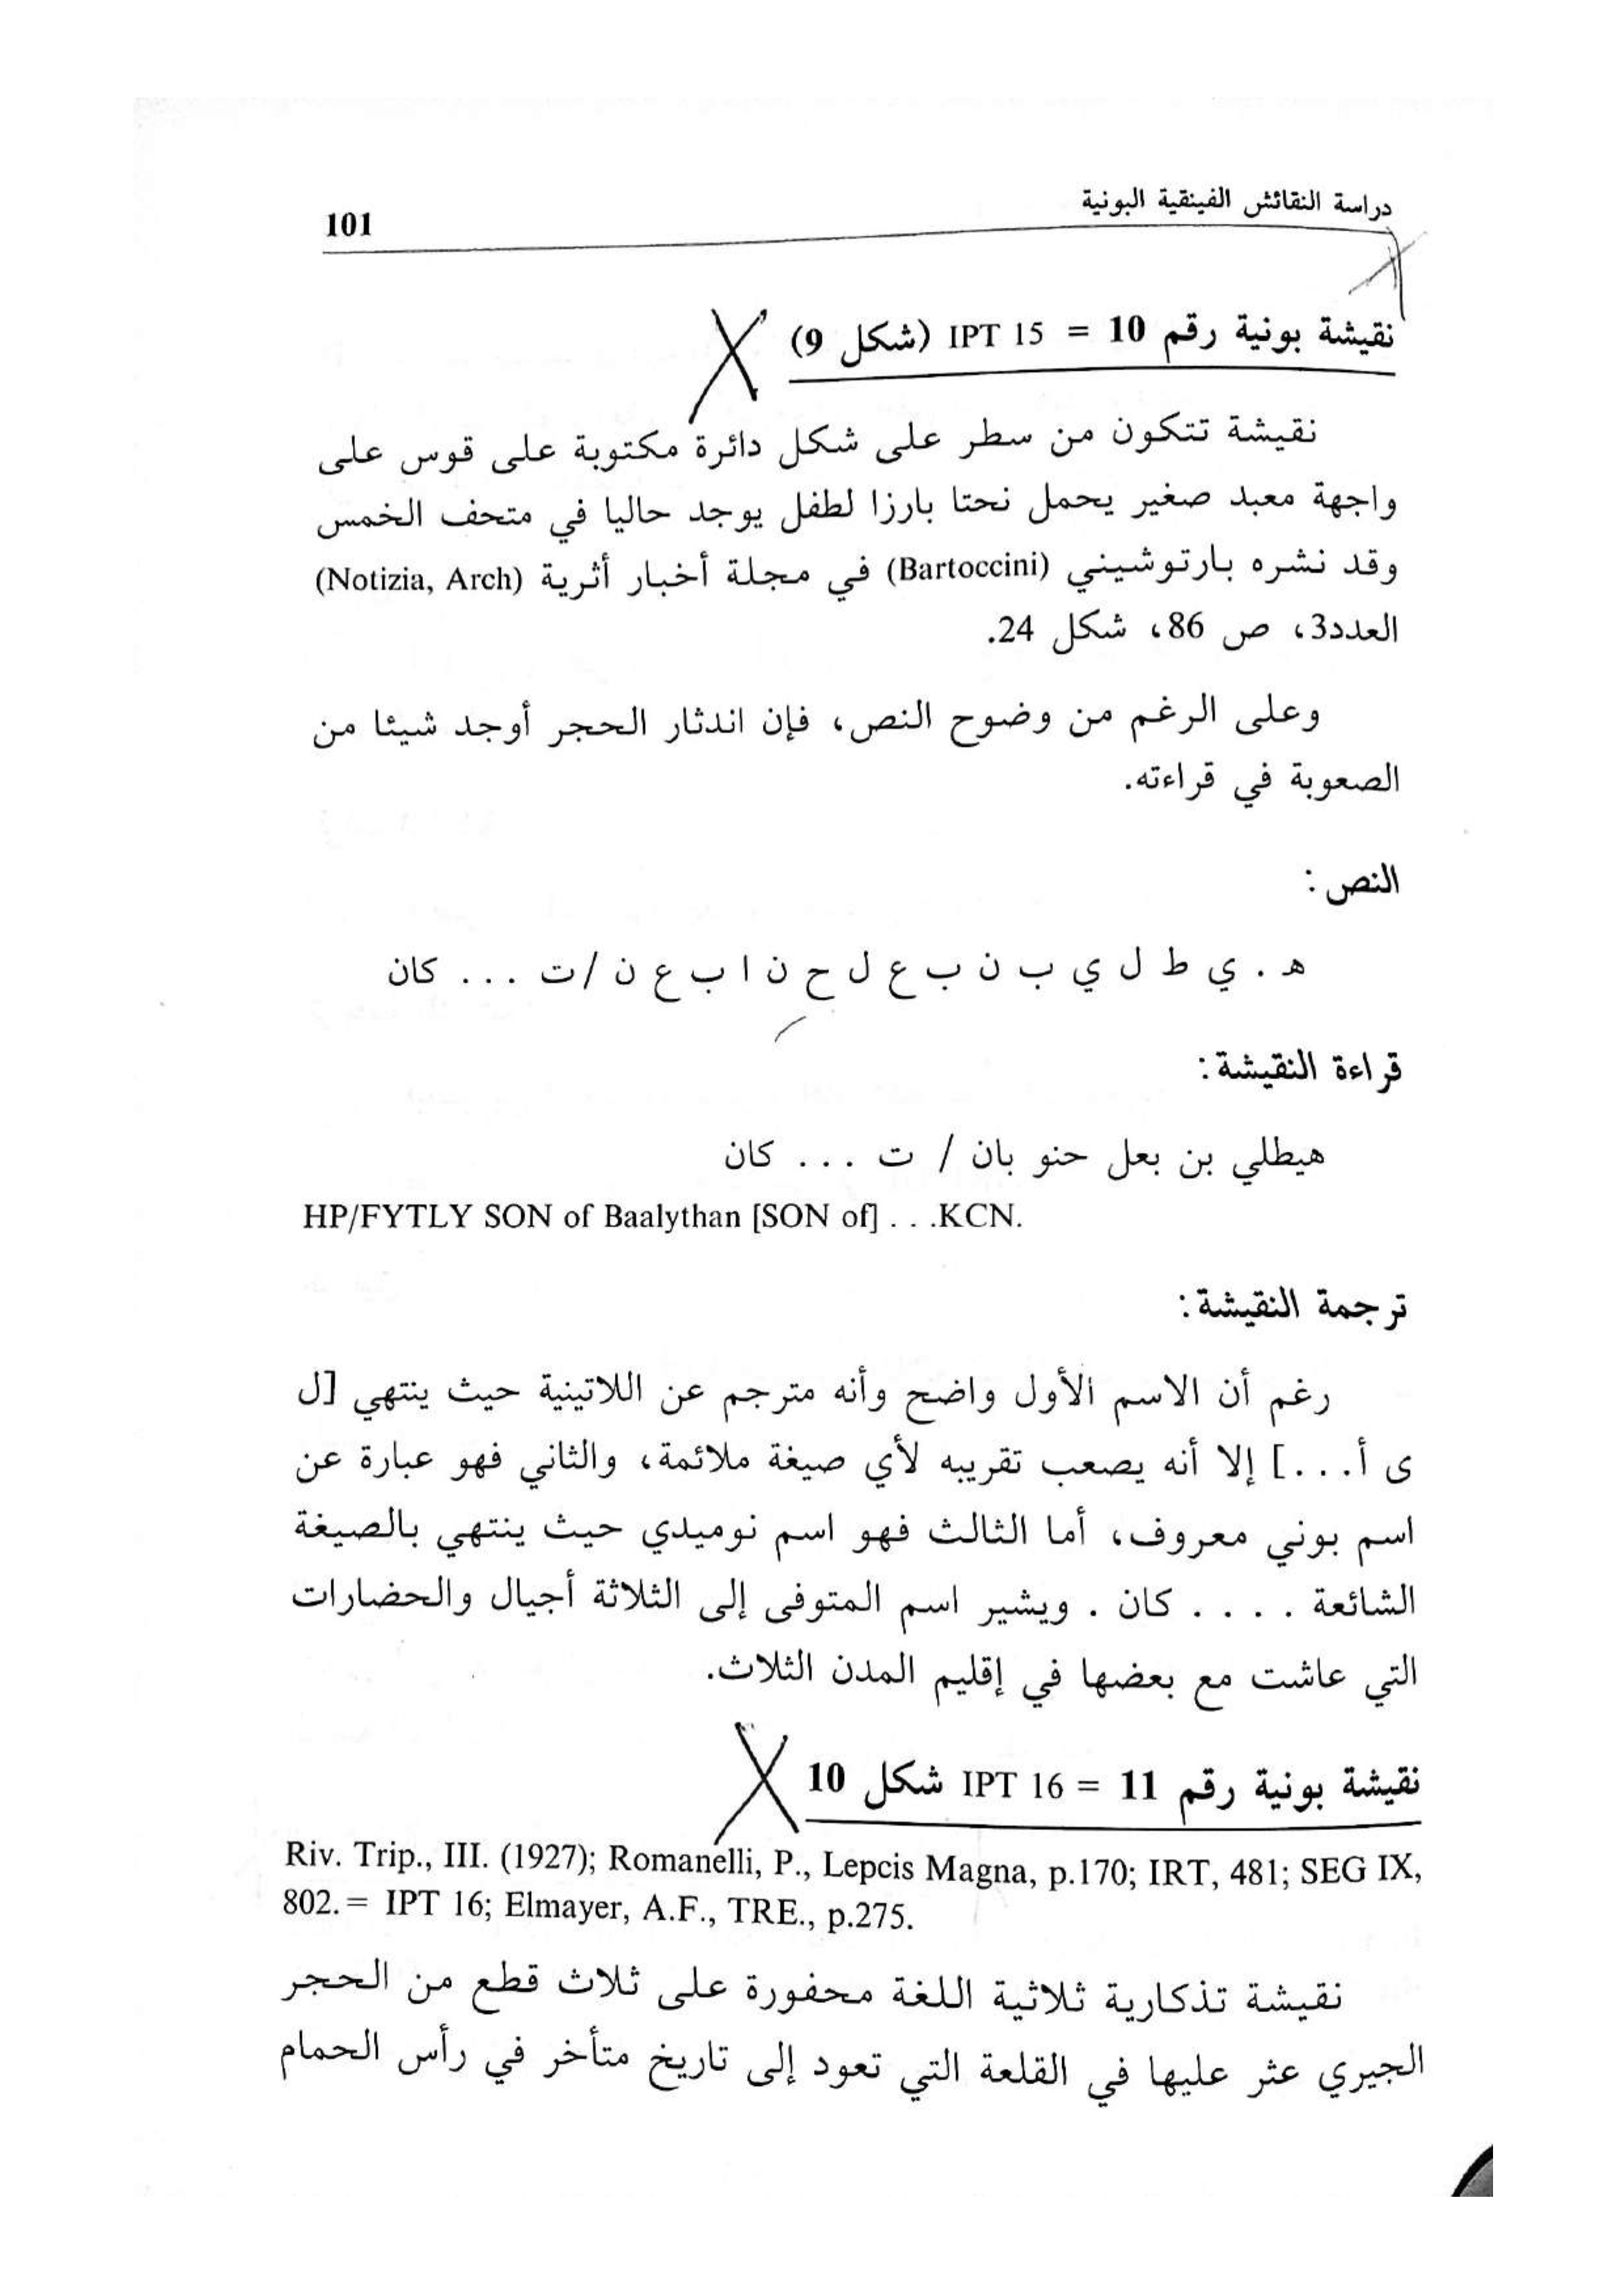 دراسة النقائش الفينقية البونية
101
نقيشة بونية رقم 10 = IPT 15 (شكل 9)
نقيشة تتكون من سطر على شكل دائرة مكتوبة على قوس على
واجهة معبد صغير يحمل نحتا بارزا لطفل يوجد حاليا في متحف الخمس
وقد نشره بارتوشيني (Bartoccini) في مجلة أخبار أثرية (Notizia, Arch)
العدد3، ص 86، شكل 24.
وعلى الرغم من وضوح النص، فإن اندثار الحجر أوجد شيئا من
الصعوبة في قراءته.
النص :
ه . ي ط ل ي ب ن ب ع ل ح ن ا ب ع ن /ت ... كان
قراءة النقيشة:
هيطلي بن بعل حنو بان / ت ... كان
HP/FYTLY SON of Baalythan [SON of] . . .KCN.
ترجمة النقيشة:
رغم أن الاسم الأول واضح وأنه مترجم عن اللاتينية حيث ينتهي [ل
ى أ...] إلا أنه يصعب تقريبه لأي صيغة ملائمة، والثاني فهو عبارة عن
اسم بوني معروف، أما الثالث فهو اسم نوميدي حيث ينتهي بالصيغة
الشائعة . . . . كان . ويشير اسم المتوفى إلى الثلاثة أجيال والحضارات
التي عاشت مع بعضها في إقليم المدن الثلاث.
نقيشة بونية رقم 11 = IPT 16 شكل 10
Riv. Trip., III. (1927); Romanelli, P., Lepcis Magna, p.170; IRT, 481; SEG IX,
802.= IPT 16; Elmayer, A.F., TRE., p.275.
نقيشة تذكارية ثلاثية اللغة محفورة على ثلاث قطع من الحجر
الجيري عثر عليها في القلعة التي تعود إلى تاريخ متأخر في رأس الحمام